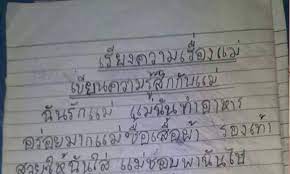 เรียงความเรื่องแม่
เขียนความรู้สึกกับแม่
ฉันรักแม่ แม่นั้นทำอาหาร
อร่อยมากแม่ซื้อเสื้อผ้า รองเท้า
สวยให้ฉันใส่ แม่ชอบพาฉันไป